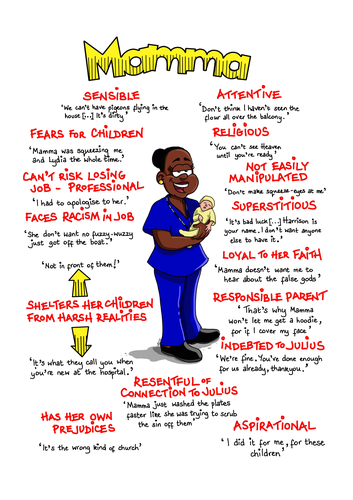 Mamma
SENSIBLE
'We can't have pigeons flying in the
house [...] It's dirty'
FEARS FOR CHILDREN
'Mamma was squeezing me
and Lydia the whole time.'
CAN'T RISK LOSING
JOB - PROFESSIONAL
'I had to apologise to her.'
FACES RACISM IN JOB
'She don't want no fuzzy-wuzzy
just got off the boat.'
'Not in front of them!'
SHELTERS HER CHILDREN
FROM HARSH REALITIES
'It's what they call you when
you're new at the hospital.'
HAS HER OWN
PREJUDICES
'It's the wrong kind of church'
RESENTFUL OF
CONNECTION TO JULIUS
'Mamma just washed the plates
faster like she was trying to scrub
the sin off them'
ATTENTIVE
'Don't think I haven't seen the
flour all over the balcony.'
RELIGIOUS
'You can't see Heaven
until you're ready'
NOT EASILY
MANIPULATED
'Don't make squeeze-eyes at me'
SUPERSTITIOUS
'It's bad luck [...] Harrison is
your name. I don't want anyone
else to have it.'
LOYAL TO HER FAITH
'Mamma doesn't want me to
hear about the false gods'
RESPONSIBLE PARENT
'That's why Mamma
won't let me get a hoodie,
for if I cover my face'
INDEBTED TO JULIUS
'We're fine. You've done enough
for us already, thankyou.'
ASPIRATIONAL
'I did it for me, for these
children'